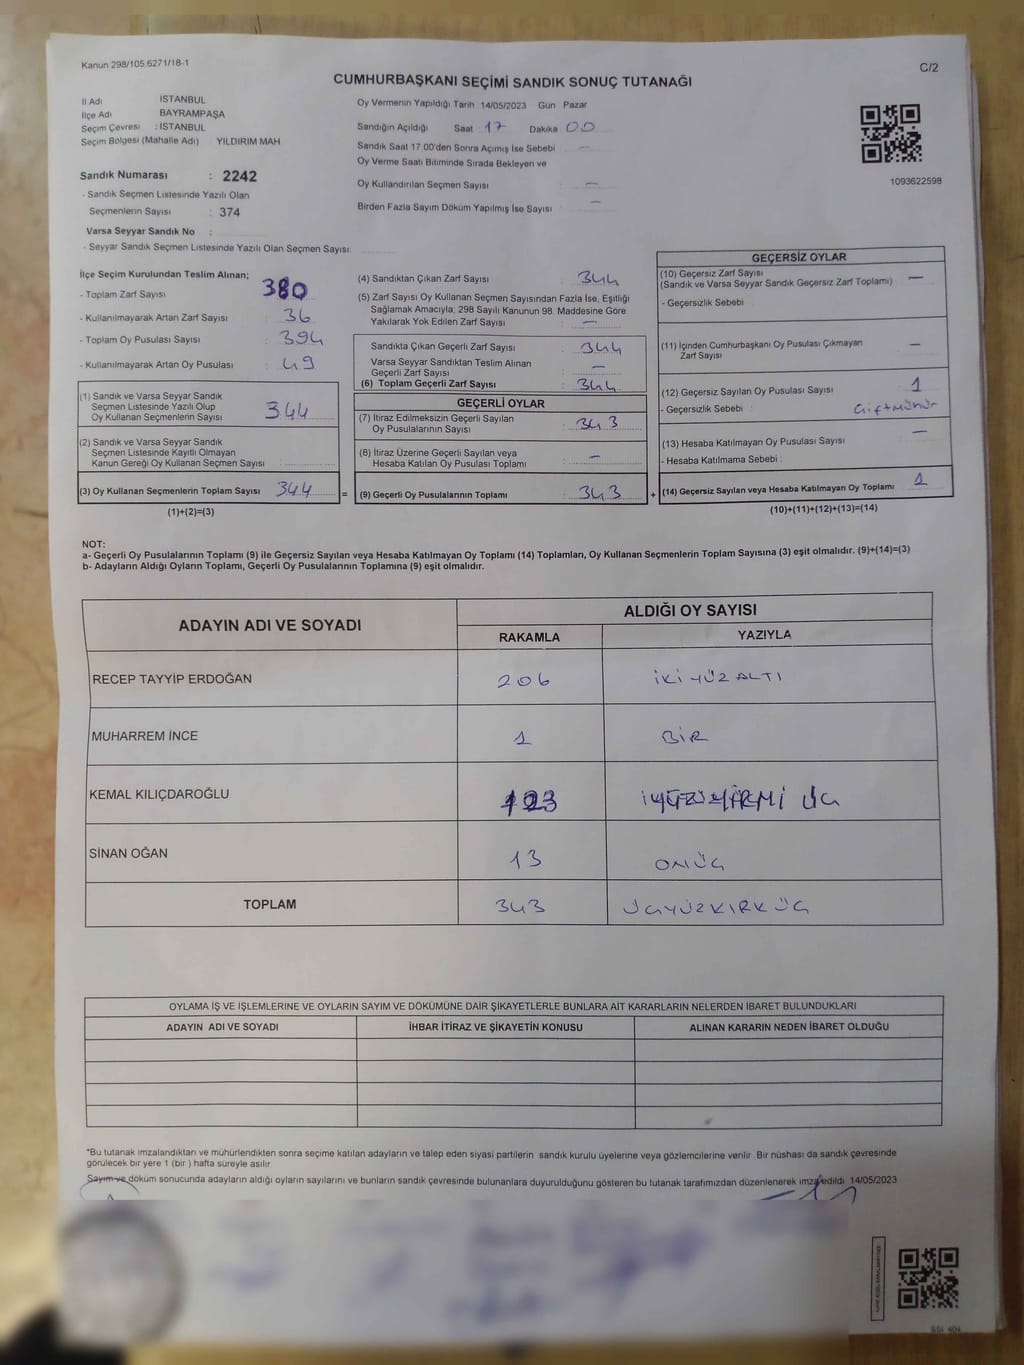 Kanun 298/105.6271/18-1
C/2
CUMHURBAŞKANI SEÇİMİ SANDIK SONUÇ TUTANAĞI
İl Adı İSTANBUL
İlçe Adı BAYRAMPAŞA
Seçim Çevresi : İSTANBUL
Seçim Bölgesi (Mahalle Adı) YILDIRIM MAH
Sandık Numarası : 2242
- Sandık Seçmen Listesinde Yazılı Olan
Seçmenlerin Sayısı : 374
Varsa Seyyar Sandık No :
- Seyyar Sandık Seçmen Listesinde Yazılı Olan Seçmen Sayısı:
Oy Vermenin Yapıldığı Tarih 14/05/2023 Gün Pazar
Sandığın Açıldığı Saat 17 Dakika 00
Sandık Saat 17 00'den Sonra Açımış İse Sebebi -
Oy Verme Saati Bitiminde Sırada Bekleyen ve
Oy Kullandırılan Seçmen Sayısı : -
Birden Fazla Sayım Döküm Yapılmış İse Sayısı : -
1093622598
İlçe Seçim Kurulundan Teslim Alınan;
- Toplam Zarf Sayısı : 380
- Kullanılmayarak Artan Zarf Sayısı : 36
- Toplam Oy Pusulası Sayısı : 394
- Kullanılmayarak Artan Oy Pusulası : 49
(1) Sandık ve Varsa Seyyar Sandık
Seçmen Listesinde Yazılı Olup
Oy Kullanan Seçmenlerin Sayısı : 344
(2) Sandık ve Varsa Seyyar Sandık
Seçmen Listesinde Kayıtlı Olmayan
Kanun Gereği Oy Kullanan Seçmen Sayısı :
(3) Oy Kullanan Seçmenlerin Toplam Sayısı : 344 =
(1)+(2)=(3)
(4) Sandıktan Çıkan Zarf Sayısı : 344
(5) Zarf Sayısı Oy Kullanan Seçmen Sayısından Fazla İse, Eşitliği
Sağlamak Amacıyla; 298 Sayılı Kanunun 98. Maddesine Göre
Yakılarak Yok Edilen Zarf Sayısı : -
Sandıkta Çıkan Geçerli Zarf Sayısı : 344
Varsa Seyyar Sandıktan Teslim Alınan
Geçerli Zarf Sayısı : -
(6) Toplam Geçerli Zarf Sayısı : 344
GEÇERLİ OYLAR
(7) İtiraz Edilmeksizin Geçerli Sayılan
Oy Pusulalarının Sayısı : 343
(8) İtiraz Üzerine Geçerli Sayılan veya
Hesaba Katılan Oy Pusulası Toplamı : -
(9) Geçerli Oy Pusulalarının Toplamı : 343 +
GEÇERSİZ OYLAR
(10) Geçersiz Zarf Sayısı
(Sandık ve Varsa Seyyar Sandık Geçersiz Zarf Toplamı) : -
- Geçersizlik Sebebi :
(11) İçinden Cumhurbaşkanı Oy Pusulası Çıkmayan
Zarf Sayısı : -
(12) Geçersiz Sayılan Oy Pusulası Sayısı : 1
- Geçersizlik Sebebi : Çift Mühür
(13) Hesaba Katılmayan Oy Pusulası Sayısı : -
- Hesaba Katılmama Sebebi :
(14) Geçersiz Sayılan veya Hesaba Katılmayan Oy Toplamı 1
(10)+(11)+(12)+(13)=(14)
NOT:
a- Geçerli Oy Pusulalarının Toplamı (9) ile Geçersiz Sayılan veya Hesaba Katılmayan Oy Toplamı (14) Toplamları, Oy Kullanan Seçmenlerin Toplam Sayısına (3) eşit olmalıdır. (9)+(14)=(3)
b- Adayların Aldığı Oyların Toplamı, Geçerli Oy Pusulalarının Toplamına (9) eşit olmalıdır.
ADAYIN ADI VE SOYADI ALDIĞI OY SAYISI
RAKAMLA YAZIYLA
RECEP TAYYİP ERDOĞAN 206 İKİ YÜZ ALTI
MUHARREM İNCE 1 BİR
KEMAL KILIÇDAROĞLU 123 YÜZYİRMİ ÜÇ
SİNAN OĞAN 13 ONÜÇ
TOPLAM 343 ÜÇYÜZKIRKÜÇ
OYLAMA İŞ VE İŞLEMLERİNE VE OYLARIN SAYIM VE DÖKÜMÜNE DAİR ŞİKAYETLERLE BUNLARA AİT KARARLARIN NELERDEN İBARET BULUNDUKLARI
ADAYIN ADI VE SOYADI İHBAR İTİRAZ VE ŞİKAYETİN KONUSU ALINAN KARARIN NEDEN İBARET OLDUĞU
*Bu tutanak imzalandıktan ve mühürlendikten sonra seçime katılan adayların ve talep eden siyasi partilerin sandık kurulu üyelerine veya gözlemcilerine verilir Bir nüshası da sandık çevresinde
görülecek bir yere 1 (bir ) hafta süreyle asılır
Sayım ve döküm sonucunda adayların aldığı oyların sayılarını ve bunların sandık çevresinde bulunanlara duyurulduğunu gösteren bu tutanak tarafımızdan düzenlenerek imza edildi 14/05/2023